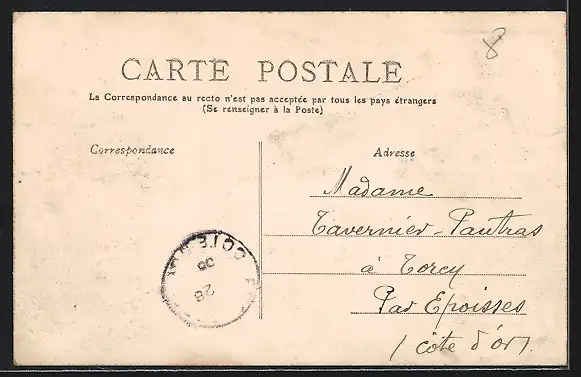 8
CARTE POSTALE
La Correspondance au recto n'est pas acceptée par tous les pays étrangers
(Se renseigner à la Poste)
Correspondance
Adresse
Madame
Tavernier-Pautras
à Torcy
Par Epoisses
(côte d'or)
28